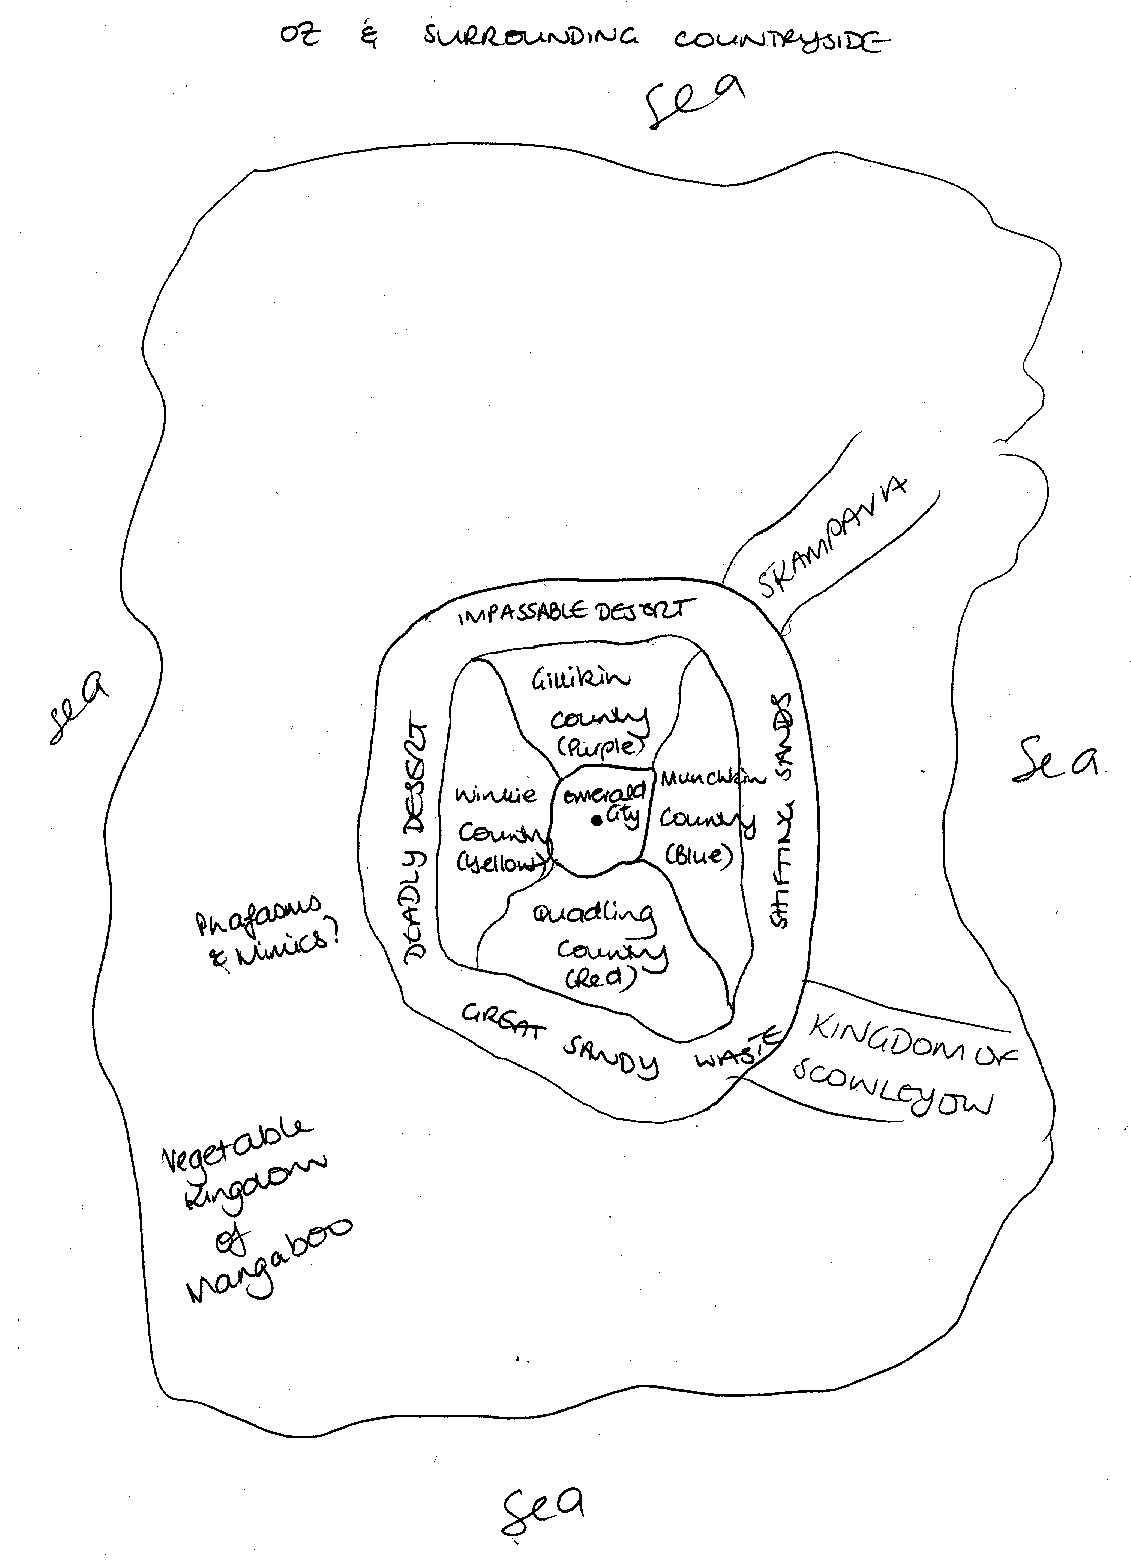 OZ & SURROUNDING COUNTRYSIDE
Sea
SKAMPAVIA
IMPASSABLE DESERT
Gillikin
Country
(Purple)
sea
DEADLY DESERT
SHIFTING SANDS
Sea
Winkie
Country
(Yellow)
Emerald
City
Munchkin
Country
(Blue)
Phafasms
& Mimics?
Quadling
Country
(Red)
GREAT SANDY WASTE
KINGDOM OF
SCOWLEYOW
Vegetable
Kingdom
of
Mangaboo
Sea